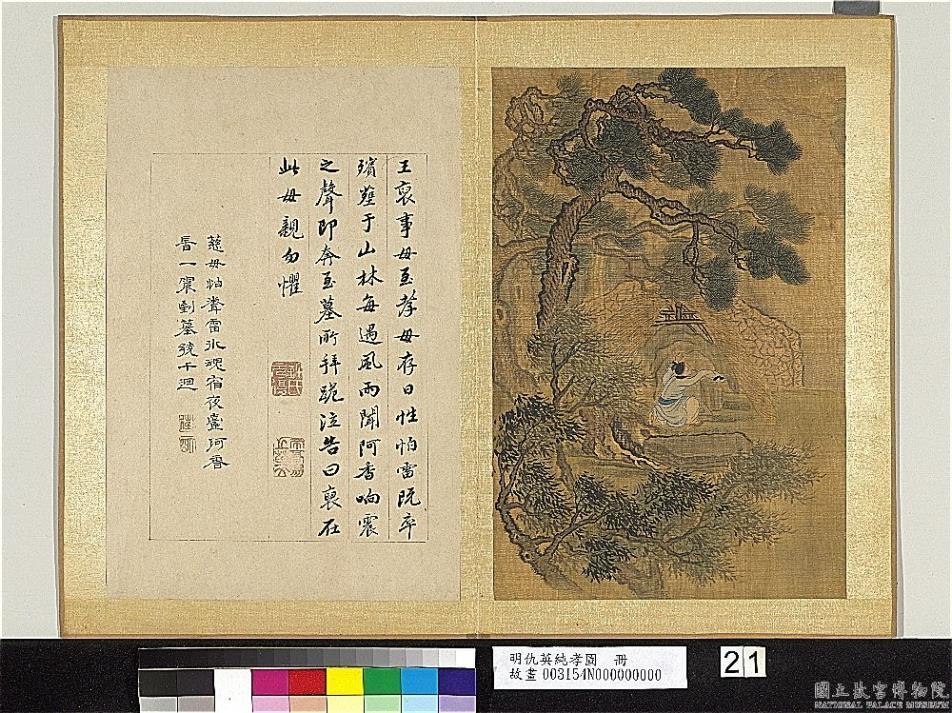 王裒事母至孝母存日性怕雷既卒
殯塟于山林每遇風雨聞阿香响震
之聲即奔至墓所拜跪泣告曰裒在
此母親勿懼
慈母怕聞雷氷魂宿夜臺阿香
旹一震到墓遶千迴
明仇英純孝圖 冊
故畫 003154N000000000
21
國立故宮博物院
NATIONAL PALACE MUSEUM